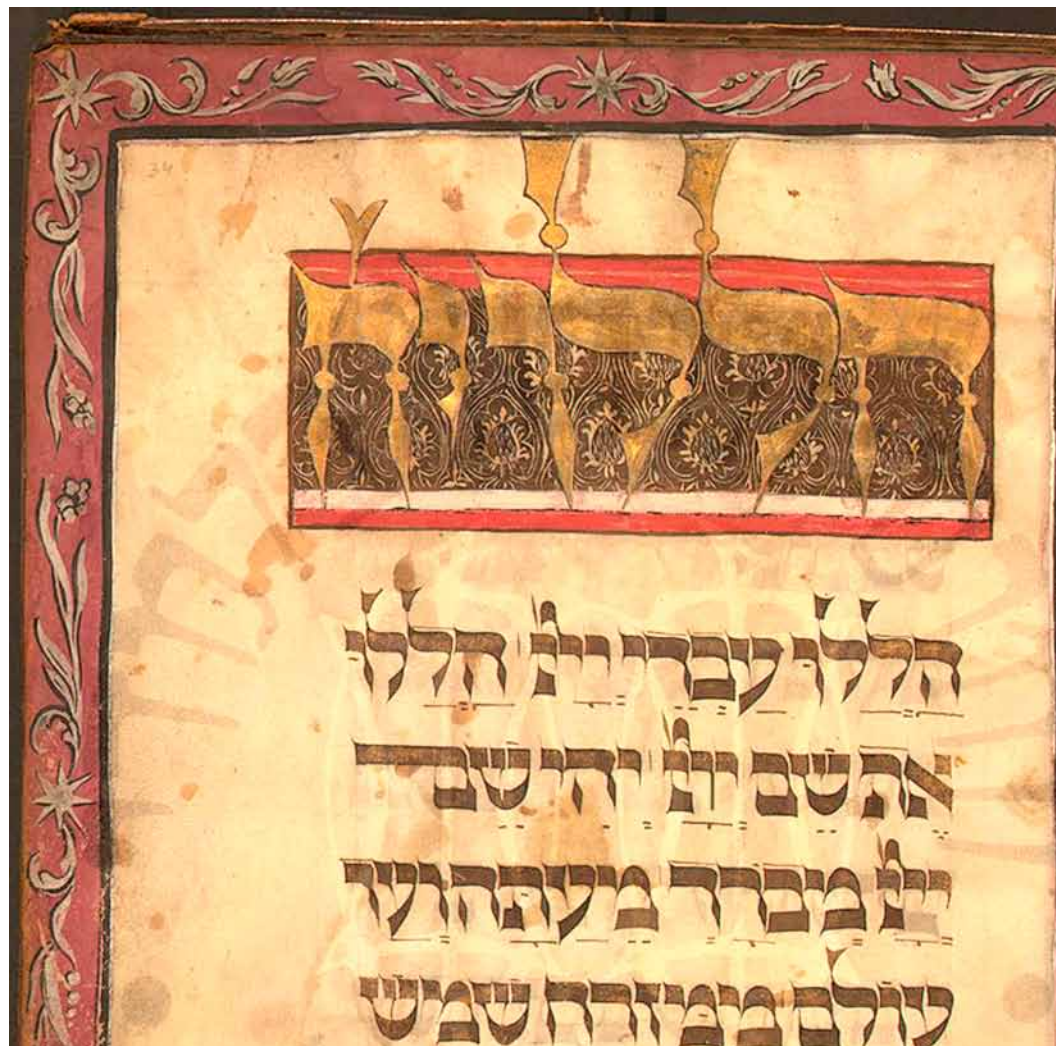 34
הללויה
הַלְלוּ עַבְדֵי ייי הַלְלוּ
אֶת שֵׁם ייי יְהִי שֵׁם
ייי מְבֹרָךְ מֵעַתָּה וְעַד
עוֹלָם מִמִּזְרַח שֶׁמֶשׁ